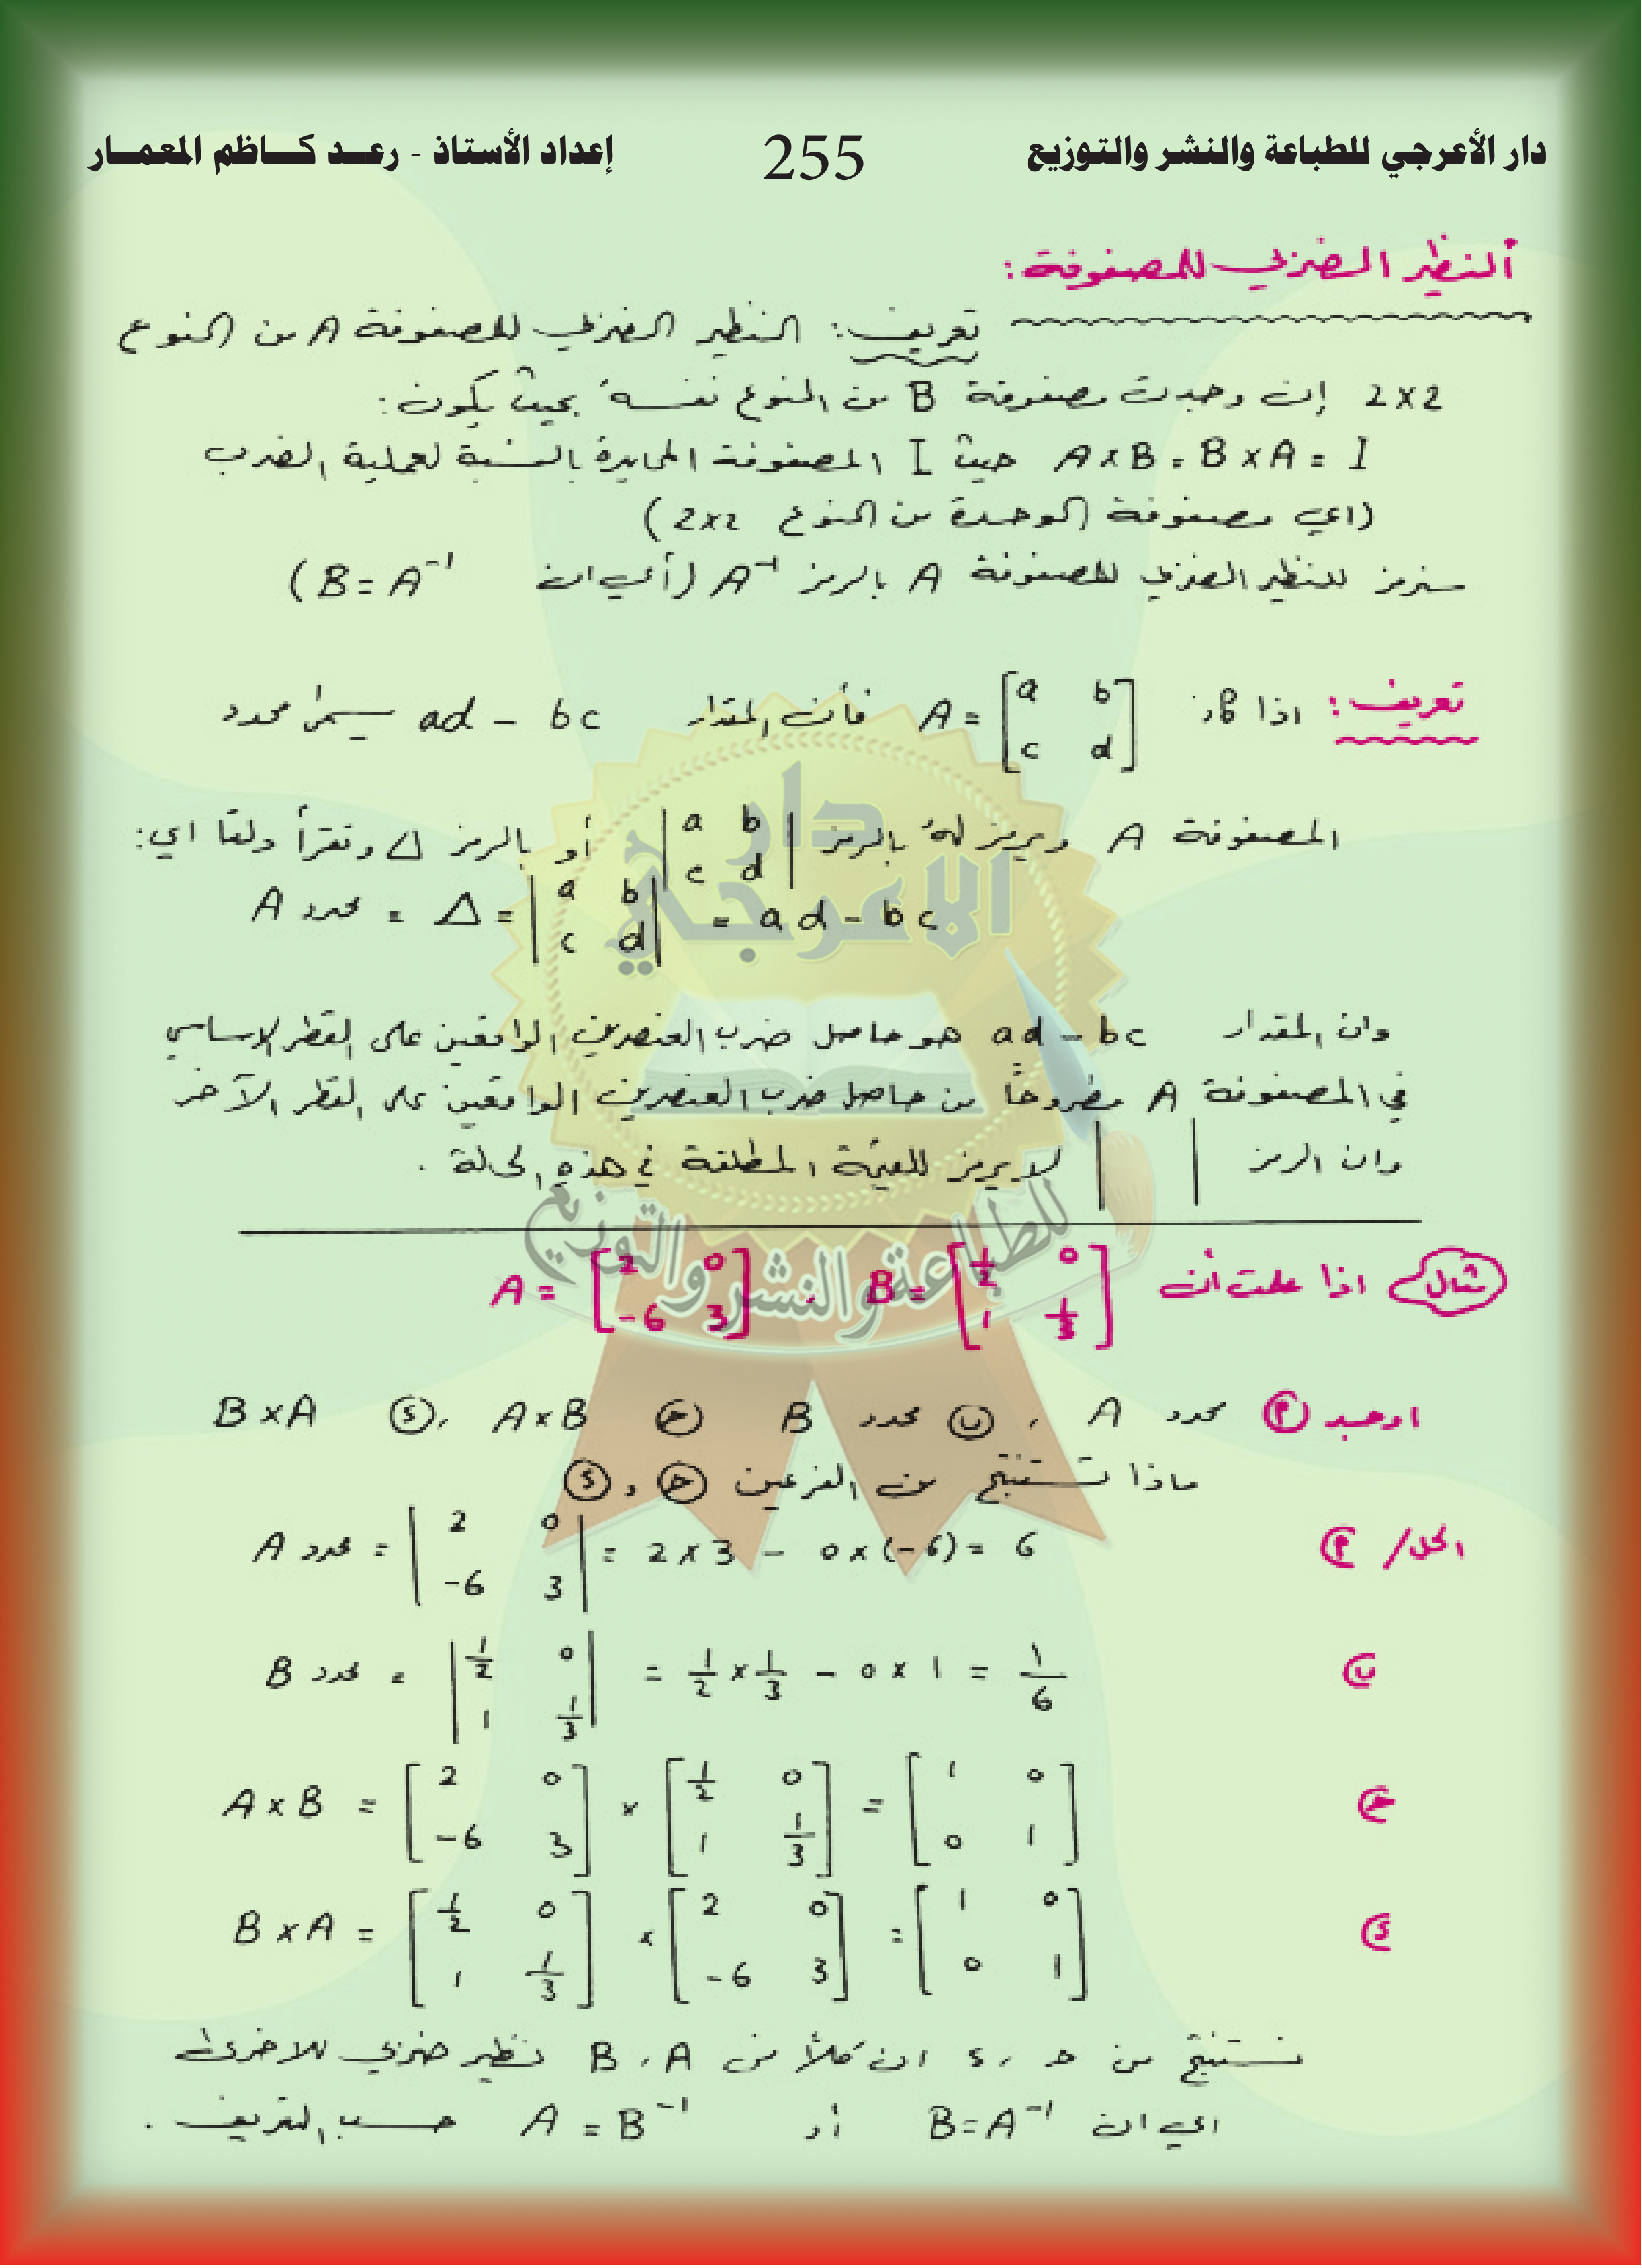 دار الأعرجي للطباعة والنشر والتوزيع 255 إعداد الأستاذ - رعـد كـاظم المعمـار
ألنظير الضربي للمصفوفة :
تعريف : النظير الضربي للمصفوفة A من النوع
2x2 إن وجدت مصفوفة B من النوع نفسه بحيث يكون :
A x B = B x A = I حيث I المصفوفة المحايدة بالنسبة لعملية الضرب
(اي مصفوفة الوحدة من النوع 2x2)
سنرمز للنظير الضربي للمصفوفة A بالرمز A⁻¹ (أي ان B = A⁻¹)
تعريف : اذا كان A = [a b; c d] فأن المقدار ad - bc يسمى محدد
المصفوفة A ويرمز له بالرمز |a b; c d| أو بالرمز Δ وتقرأ دلتا اي :
محدد A = Δ = |a b; c d| = ad - bc
وان المقدار ad - bc هو حاصل ضرب العنصرين الواقعين على القطر الاساسي
في المصفوفة A مطروحاً من حاصل ضرب العنصرين الواقعين على القطر الآخر
وان الرمز | | لا يرمز للقيمة المطلقة في هذه الحالة .
دار
الاعرجي
للطباعة والنشر والتوزيع
مثال اذا علمت أن B = [1/2 0; 1 1/3] , A = [2 0; -6 3]
اوجد (أ) محدد A , (ب) محدد B (ج) A x B , (د) B x A
ماذا تستنتج من الفرعين (ج) , (د)
الحل / أ) محدد A = |2 0; -6 3| = 2 x 3 - 0 x (-6) = 6
ب) محدد B = |1/2 0; 1 1/3| = 1/2 x 1/3 - 0 x 1 = 1/6
ج) A x B = [2 0; -6 3] x [1/2 0; 1 1/3] = [1 0; 0 1]
د) B x A = [1/2 0; 1 1/3] x [2 0; -6 3] = [1 0; 0 1]
نستنتج من ج , د ان كلاً من A , B نظير ضربي للاخرى
اي ان B = A⁻¹ أو A = B⁻¹ حسب التعريف .